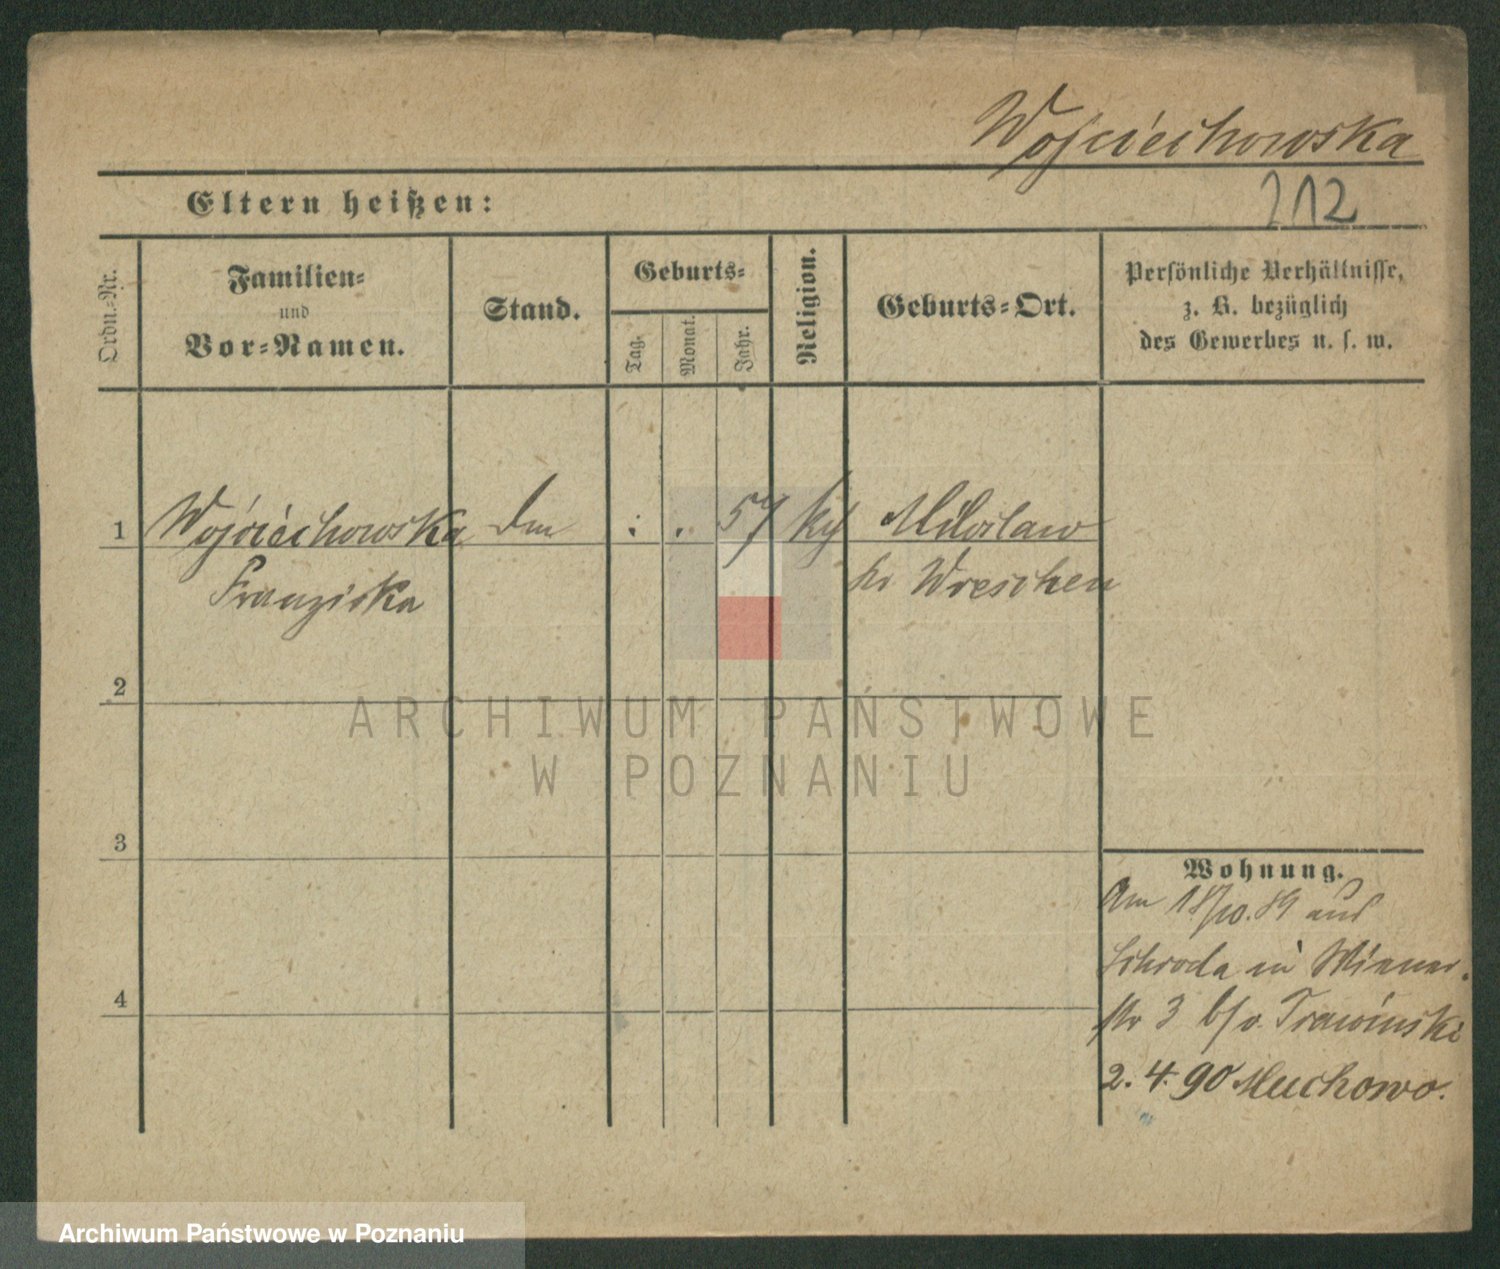 Wojciechowska
212
Eltern heißen:
Ordn.-Nr.
Familien-
und
Vor-Namen.
Stand.
Geburts-
Tag.
Monat.
Jahr.
Religion.
Geburts-Ort.
Persönliche Verhältnisse,
z. B. bezüglich
des Gewerbes u. s. w.
1 Wojciechowska : . 57 Miloslaw
Franziska Kr Wreschen
2
ARCHIWUM PAŃSTWOWE
W POZNANIU
3
4
Wohnung.
Am 18/10. 89 aus
Schroda in Wiener.
str 3 b/v. Trawinski
2. 4. 90 Muchowo.
Archiwum Państwowe w Poznaniu